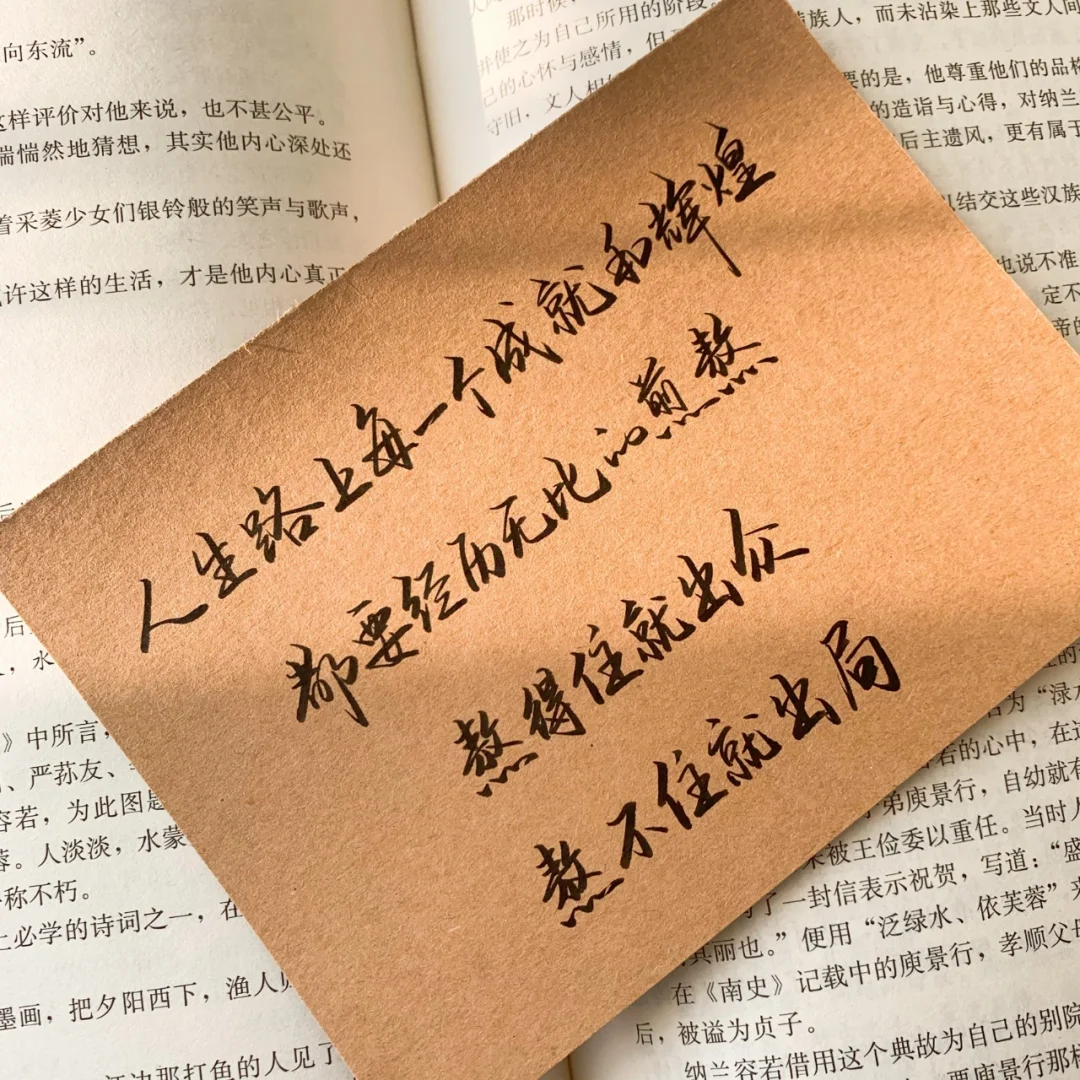 人生路上每一个成就和辉煌
都要经历无比的煎熬
熬得住就出众
熬不住就出局
向东流”。
这样评价对他来说，也不甚公平。
惴惴然地猜想，其实他内心深处还
着采菱少女们银铃般的笑声与歌声，
许这样的生活，才是他内心真正
》中所言，
、严荪友、
容若，为此图是
蓉。人淡淡，水蒙
称不朽。
上必学的诗词之一，在
墨画，把夕阳西下，渔人
江边那打鱼的人见了
那时候，
并使之为自己所用的阶段。
族人，而未沾染上那些文人间
己的心怀与感情，但
要的是，他尊重他们的品格
守旧，文人相
的造诣与心得，对纳兰
后主遗风，更有属于
以结交这些汉族
也说不准
定不
帝的
名为“渌水
若的心中，在这
弟庾景行，自幼就有
被王俭委以重任。当时人
了一封信表示祝贺，写道：“盛
其丽也。”便用“泛绿水、依芙蓉”来
在《南史》记载中的庾景行，孝顺父母
后，被谥为贞子。
纳兰容若借用这个典故为自己的别院
要庾景行那样